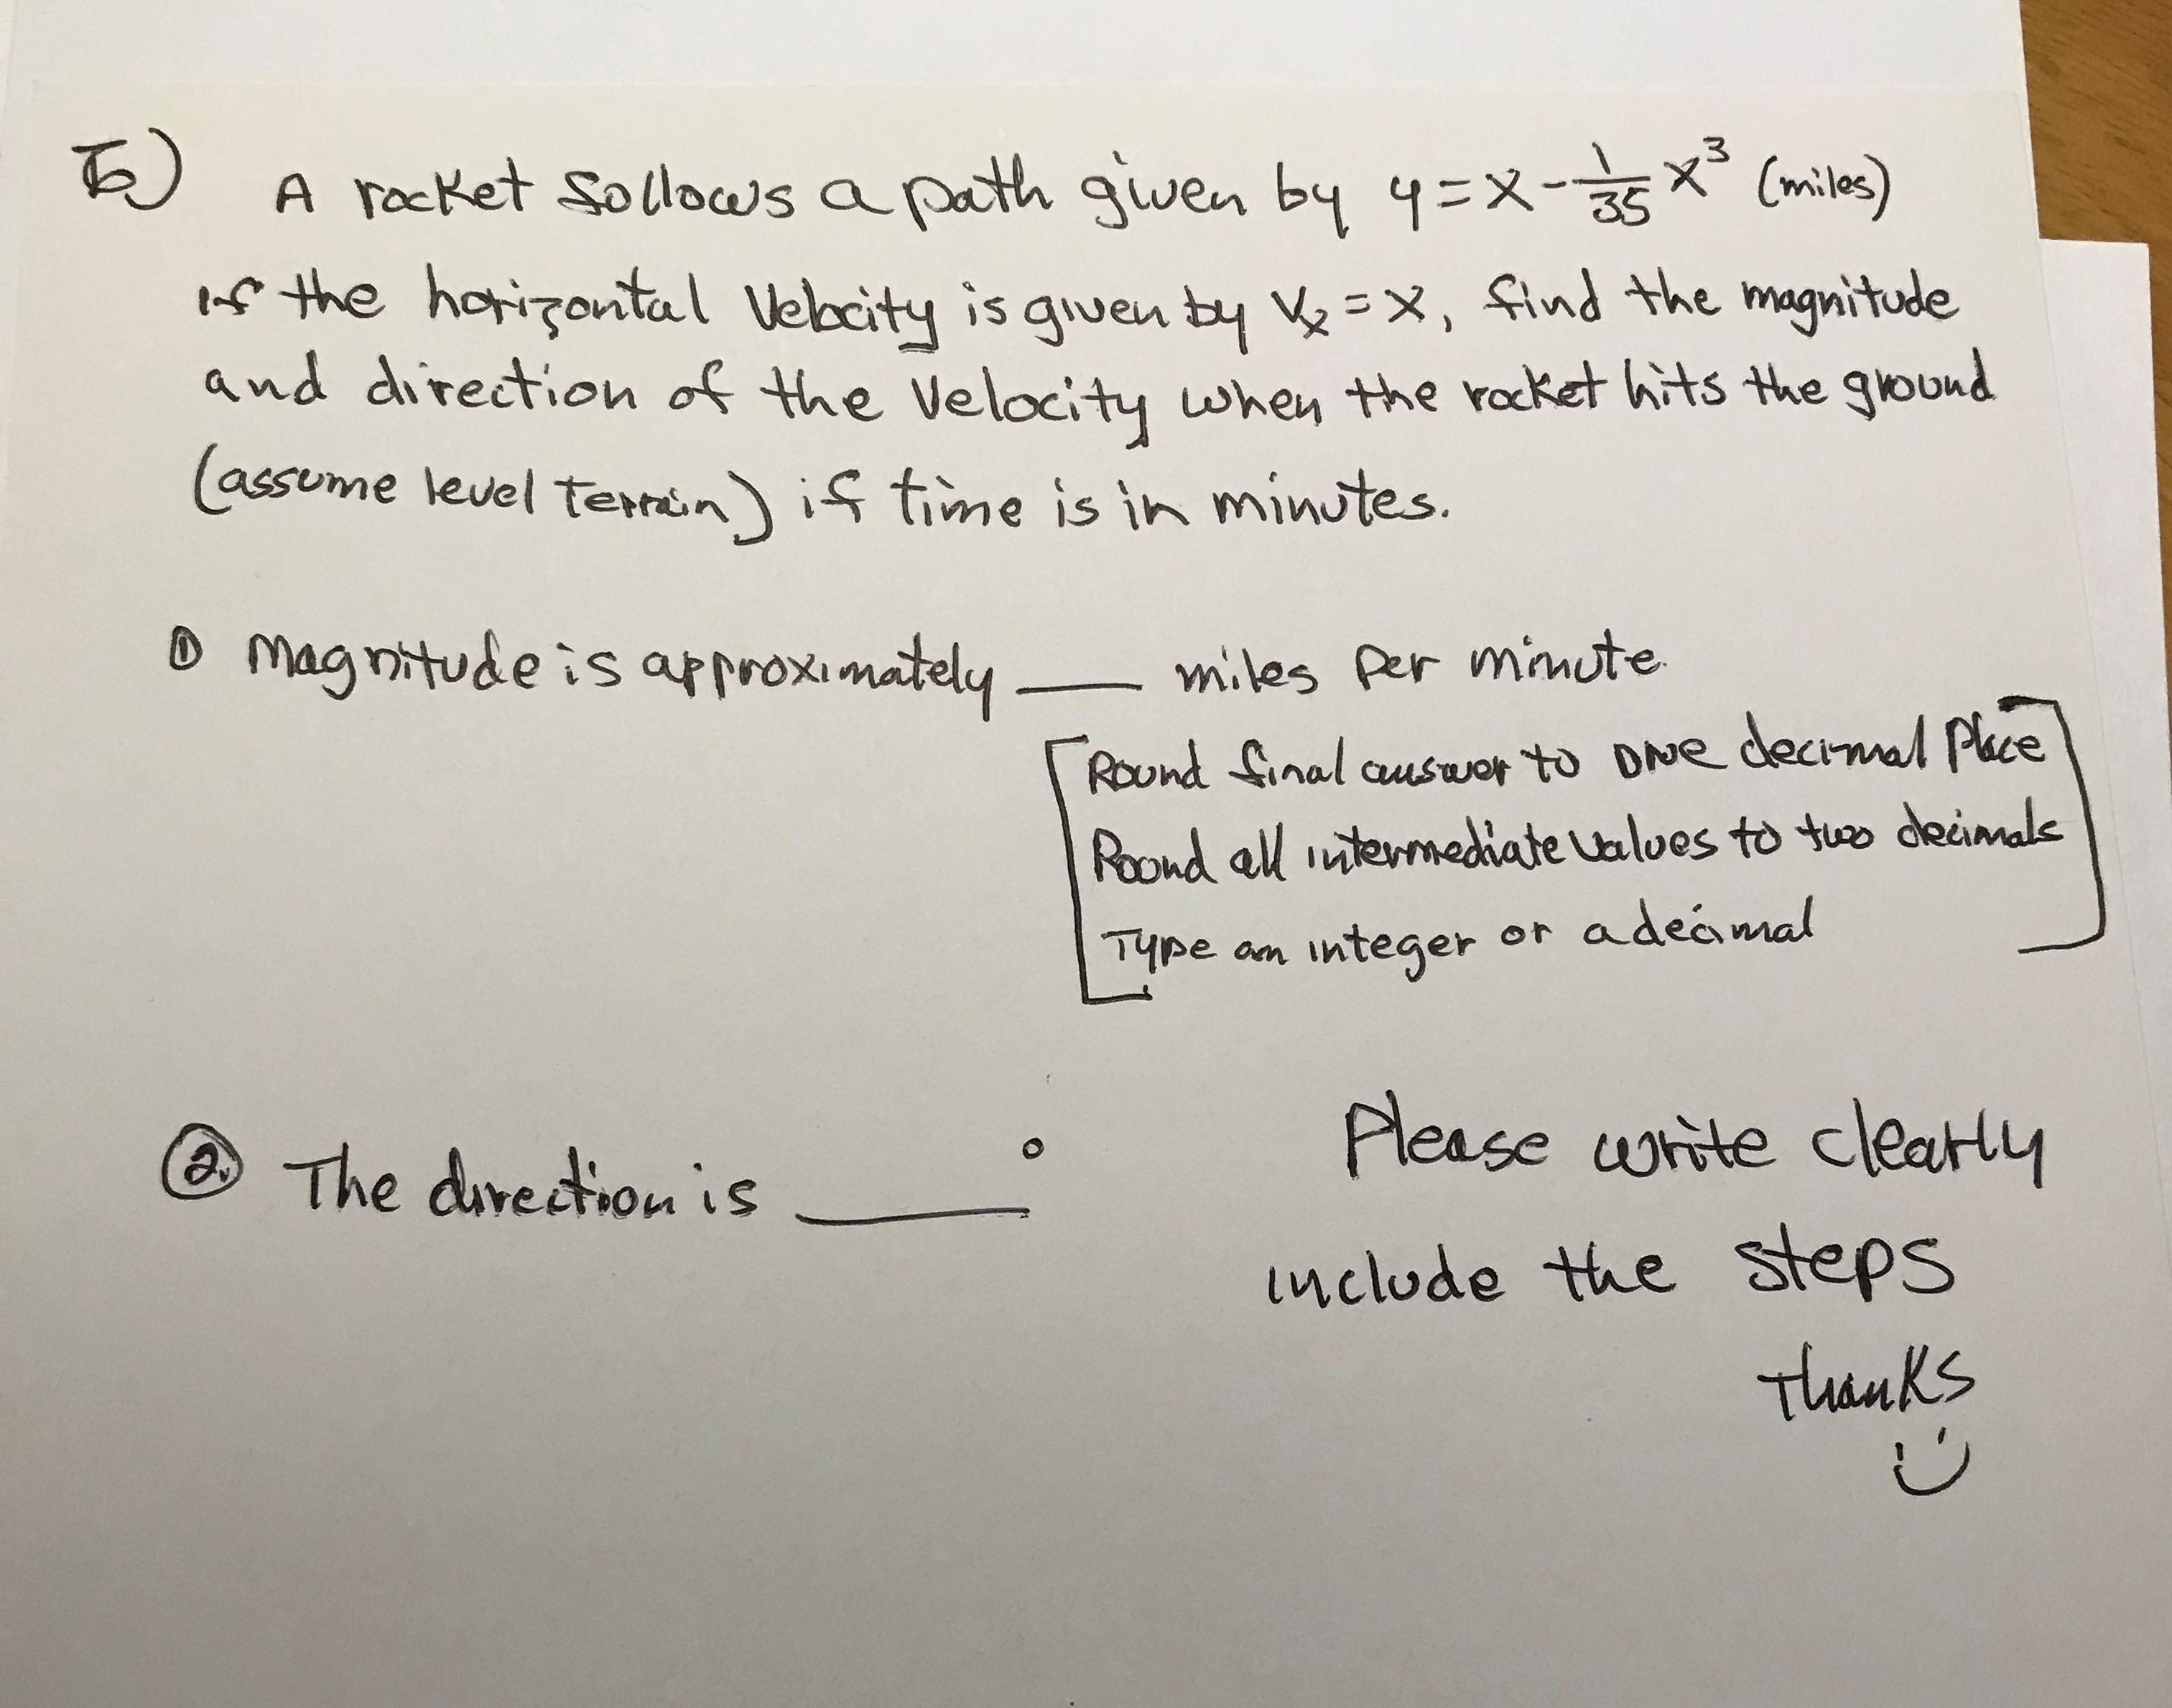 5) A rocket follows a path given by y = x - 1/35 x³ (miles)
If the horizontal velocity is given by Vx = x, find the magnitude
and direction of the velocity when the rocket hits the ground
(assume level terrain) if time is in minutes.
① Magnitude is approximately ___ miles per minute.
[Round final answer to one decimal place
Round all intermediate values to two decimals
Type an integer or a decimal]
②. The direction is ____°
Please write clearly
include the steps
Thanks